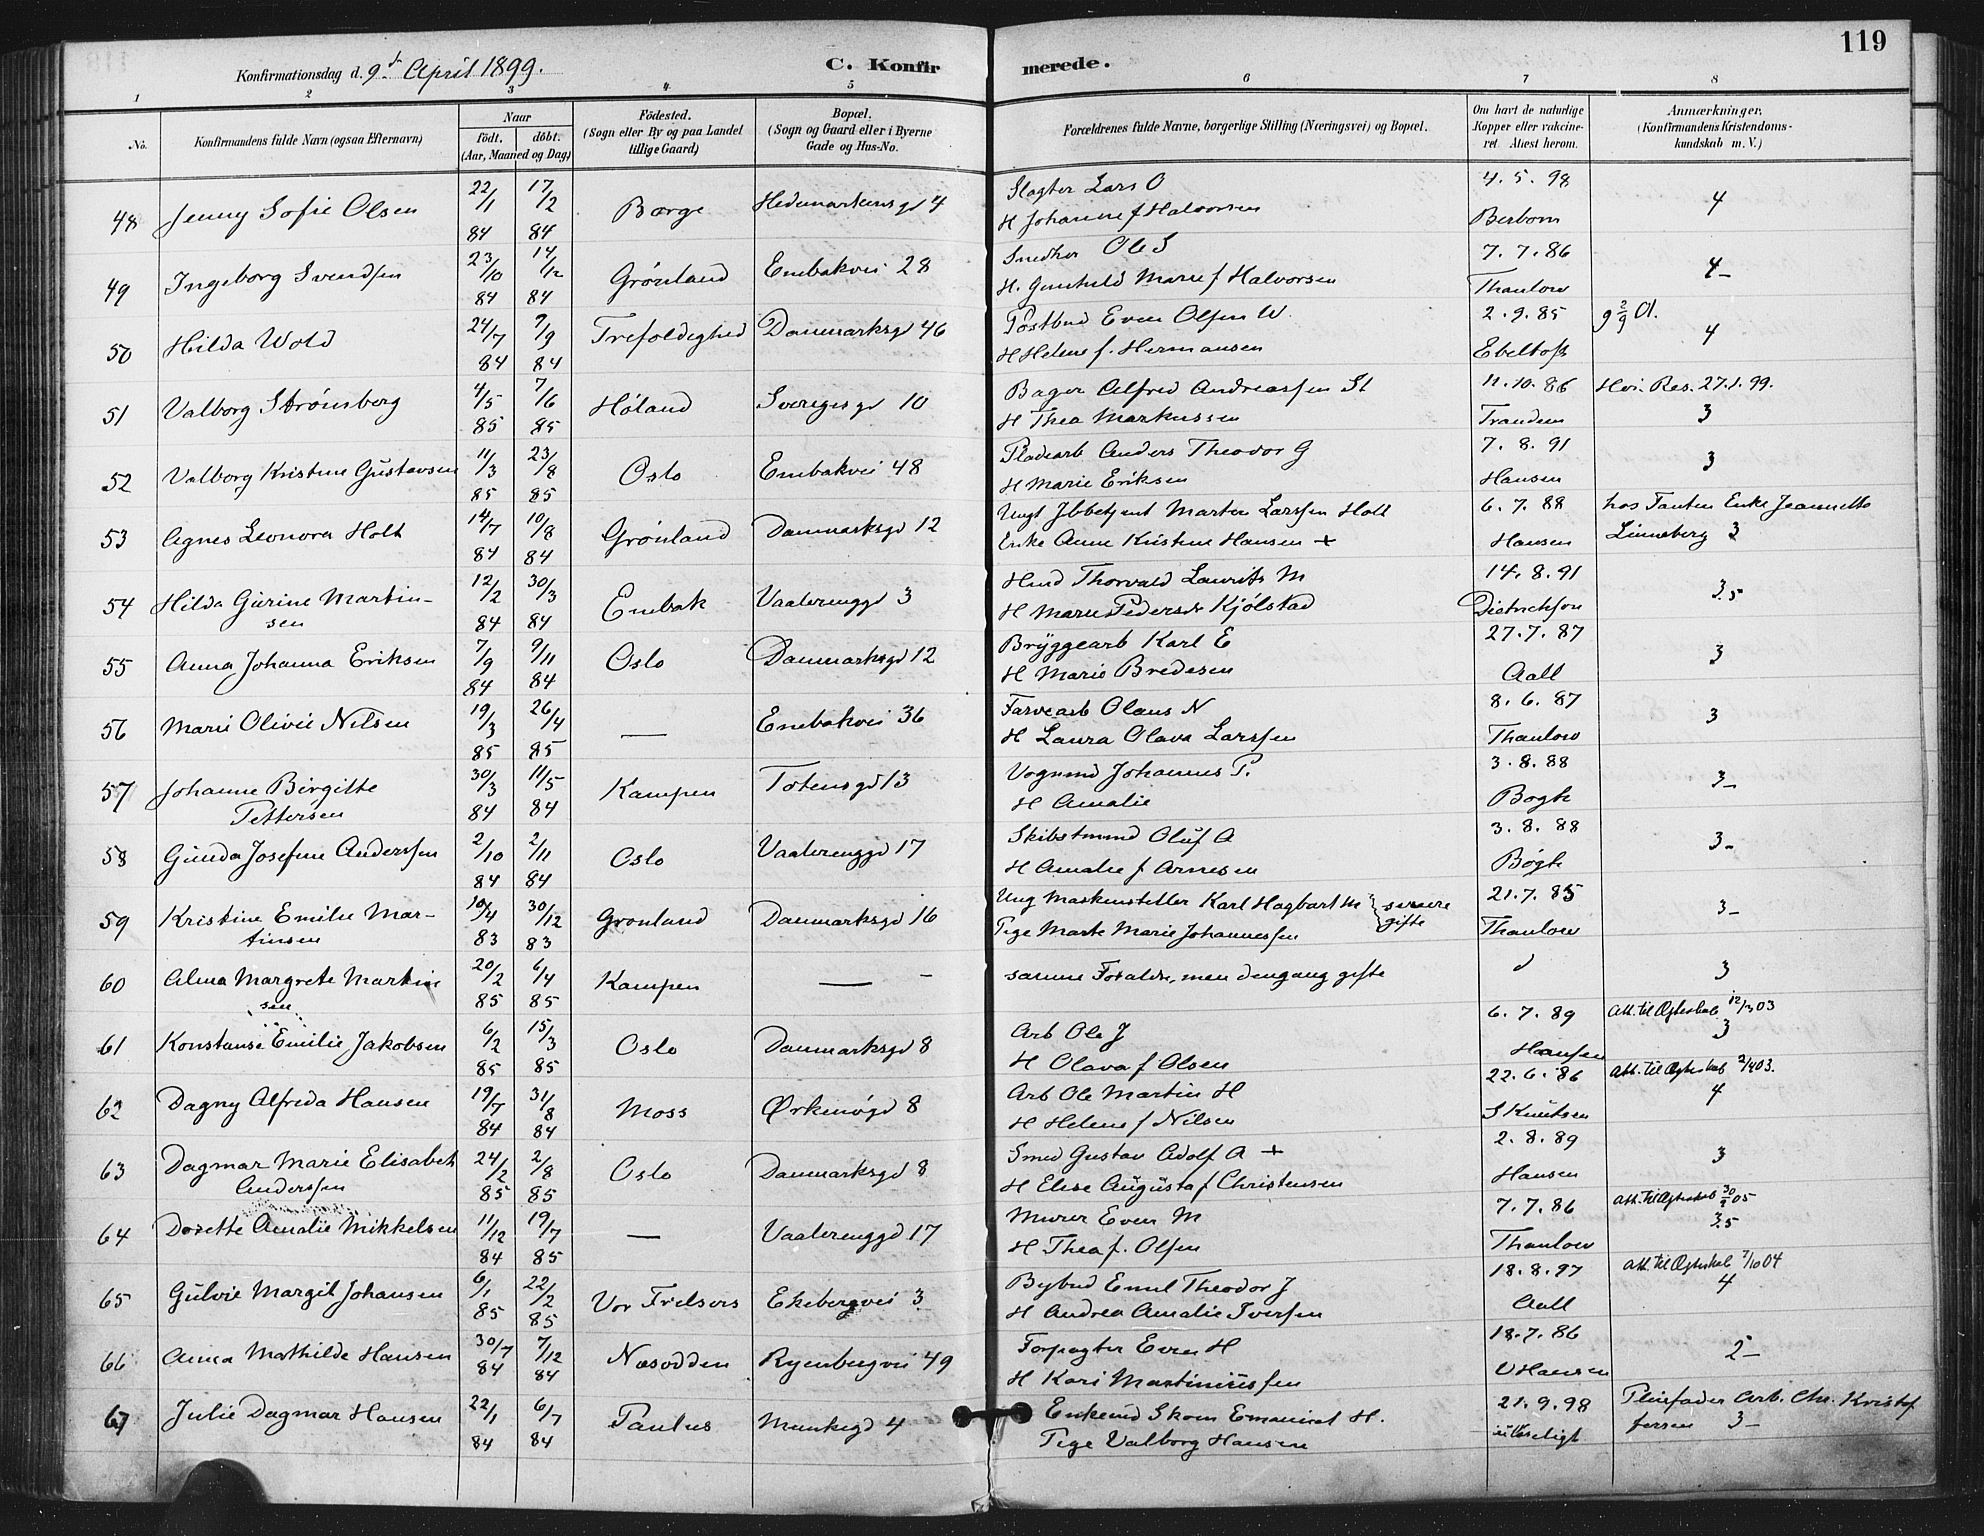 119
Konfirmationsdag d. 9d April 1899.
C. Konfirmerede.
1 2 3 4 5 6 7 8
No.
Konfirmandens fulde Navn (ogsaa Efternavn)
Naar
født. døbt.
(Aar, Maaned og Dag)
Fødested.
(Sogn eller By og paa Landet tillige Gaard)
Bopæl.
(Sogn og Gaard eller i Byerne Gade og Hus-No.
Forældrenes fulde Navne, borgerlige Stilling (Næringsvei) og Bopæl.
Om havt de naturlige Kopper eller vakcineret. Attest herom.
Anmærkninger.
(Konfirmandens Kristendomskundskab m. V.)
48 Jenny Sofie Olsen 22/1 84 17/2 84 Borge Hedemarkensgd 4 Slagter Lars O 4.5.98 4
H Johanne f Halvorsen Berbom
49 Ingeborg Svendsen 23/10 84 14/12 84 Grönland Enebakvei 28 Snedker Ole S 7.7.86 4-
H. Gunhild Marie f Halvorsen Thaulow
50 Hilda Wold 24/7 84 7/9 84 Trefoldighed Danmarksgd 46 Postbud Even Olsen W. 2.9.85 4
H Helene f. Hermansen Ebeltoft
51 Valborg Strömsborg 4/5 85 7/6 85 Höland Sverigesgd 10 Bager Alfred Andreassen St 11.10.86 Hvi. Res. 27.1.99.
H Thea Markussen Trandem 3
52 Valborg Kristine Gustavsen 11/3 85 23/8 85 Oslo Enebakvei 48 Pladearb Anders Theodor G 7.8.91 3
H Marie Eriksen Hansen
53 Agnes Leonora Holt 14/7 84 10/8 84 Grönland Danmarksgd 12 Ungk Marten Larssen Holt 6.7.88 hos Tanten Enke Jeannette
Enke Anne Kristine Hansen + Hansen Linneberg 3
54 Hilda Gurine Martinsen 12/2 84 30/3 84 Enebak Vaalerenggd 3 Hmd Thorvald Laurits M 14.8.91 3.5
H Marie Pedersdr Kjölstad Dietrichson
55 Anna Johanna Eriksen 7/9 84 9/11 84 Oslo Danmarksgd 12 Bryggearb Karl E 27.7.87 3
H Marie Bredesen Aall
56 Marie Olivie Nilsen 19/3 85 26/4 85 — Enebakvei 36 Farvearb Olaus N 8.6.87 3
H Laura Olava Larssen Thaulow
57 Johanne Birgitte Pettersen 30/3 84 11/5 84 Kampen Totensgd 13 Vognmd Johannes P. 3.8.88 3-
H Amalie Bögh
58 Gunda Josefine Anderssen 2/10 84 2/11 84 Oslo Vaalerenggd 17 Skibstmmd Oluf A 3.8.88 3-
H Amalie f Arnesen Bögh
59 Kristine Emilie Martinsen 10/4 83 30/12 83 Grönland Danmarksgd 16 Ung Maskinsteller Karl Hagbart M senere gifte 21.7.85 3-
Pige Marte Marie Johannessen Thaulow
60 Alma Margrete Martinsen 20/2 85 6/4 85 Kampen — samme Foraldre, men dengang gifte d 3
61 Konstanse Emilie Jakobsen 6/2 85 15/3 85 Oslo Danmarksgd 8 Arb Ole J 6.7.89 Att. til Ægteskab 12/3 03
H Olava f Olsen Hansen 3
62 Dagny Alfrida Hansen 19/7 84 31/8 84 Moss Örkenögd 8 Arb Ole Martin H 22.6.86 Att. til Ægteskab 2/4 03.
H Helene f Nilsen S Knutsen 4
63 Dagmar Marie Elisabeth Anderssen 24/2 85 2/8 85 Oslo Danmarksgd 8 Smed Gustav Adolf A + 2.8.89 3
H Elise Augusta f Christensen Hansen
64 Dorette Amalie Mikkelsen 11/12 84 19/7 85 — Vaalerenggd 17 Murer Even M 7.7.86 Att. til Ægteskab 30/5 05
H Thea f. Olsen Thaulow 3.5
65 Gulvie Margit Johansen 6/1 85 22/2 85 Vor Frelsers Ekebergvei 3 Bybud Emil Theodor J 18.8.97 Att. til Ægteskab 7/10 04
H Andrea Amalie Iversen Aall 4
66 Anna Mathilde Hansen 30/7 84 7/12 84 Næsodden Ryenbergvei 49 Forpagter Even H 18.7.86 2-
H Kari Martiniussen O Hansen
67 Julie Dagmar Hansen 22/1 84 6/7 84 Paulus Munkegd 4 Enkemd Skom Emanuel H. 21.9.98 Pleiefader Arb. Chr. Kristoffersen 3-
Pige Valborg Hansen ulæseligt